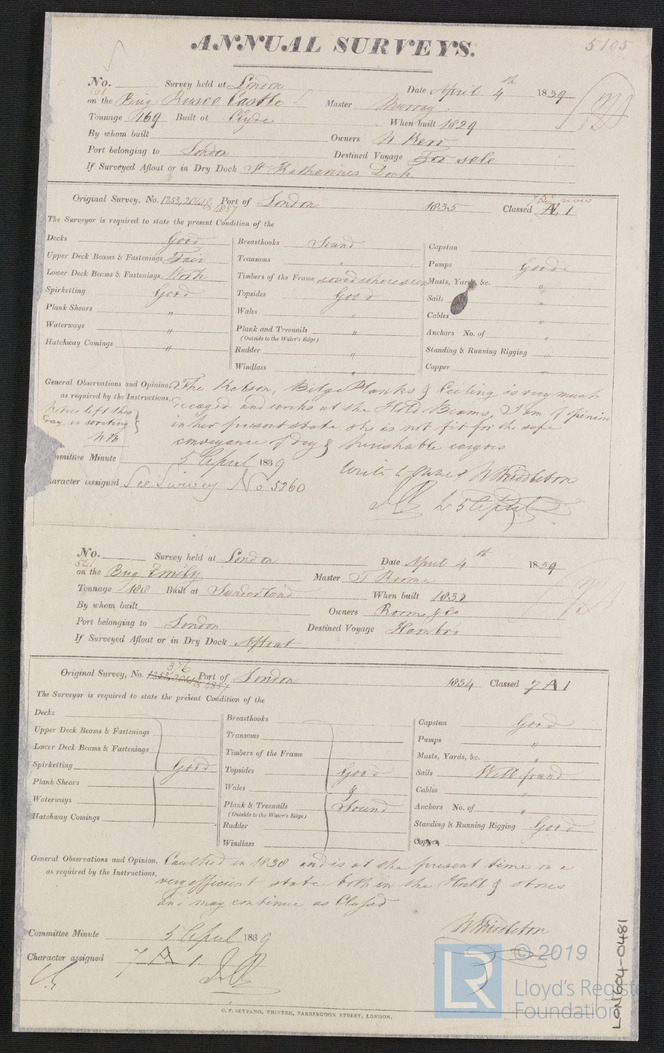 ANNUAL SURVEYS.
5105
No. Survey held at London Date April 4th 1839
on the Brig Castle Master Murray
Tonnage 169 Built at Clyde When built 1829
By whom built Owners Kerr
Port belonging to London Destined Voyage For sale
If Surveyed Afloat or in Dry Dock St Katharines Dock
Original Survey, No. Port of London 1835 Classed A 1
The Surveyor is required to state the present Condition of the
Decks Good
Upper Deck Beams & Fastenings Fair
Lower Deck Beams & Fastenings Work
Spirketting Good
Plank Shears "
Waterways "
Hatchway Comings "
Breasthooks Sound
Transoms "
Timbers of the Frame
Topsides Good
Wales "
Plank and Treenails "
(Outside to the Water's Edge)
Rudder "
Windlass "
Capstan
Pumps Good
Masts, Yards, &c. "
Sails "
Cables "
Anchors No. of "
Standing & Running Rigging "
Copper "
General Observations and Opinion, The Keelson, Bilge Planks & Ceiling is very much
as required by the Instructions, and works at the Hold Beams, I am of opinion
in her present state she is not fit for the safe
conveyance of Dry & Perishable cargoes
Committee Minute 5 April 1839
Character assigned See Survey No 5260
W Middleton
5 April
No. Survey held at London Date April 4th 1839
521
on the Brig Emily Master
Tonnage Built at Sunderland When built 1832
By whom built Owners
Port belonging to London Destined Voyage Hambro
If Surveyed Afloat or in Dry Dock Afloat
Original Survey, No. 376 Port of London 1834 Classed 7 A 1
The Surveyor is required to state the present Condition of the
Decks
Upper Deck Beams & Fastenings
Lower Deck Beams & Fastenings
Spirketting Good
Plank Shears
Waterways
Hatchway Comings
Breasthooks
Transoms
Timbers of the Frame
Topsides Good
Wales &
Plank & Treenails Sound
(Outside to the Water's Edge)
Rudder
Windlass
Capstan Good
Pumps "
Masts, Yards, &c. "
Sails Well found
Cables
Anchors No. of
Standing & Running Rigging Good
Copper
General Observations and Opinion, Caulked in 1838 and is at the present time in a
as required by the Instructions, very efficient state both in the Hull & Stores
and may continue as Classed
W Middleton
Committee Minute 5 April 1839
Character assigned 7 A 1
C. F. SEYFANG, PRINTER, FARRINGDON STREET, LONDON.
LON604-0481
LR
© 2019
Lloyd's Register
Foundation